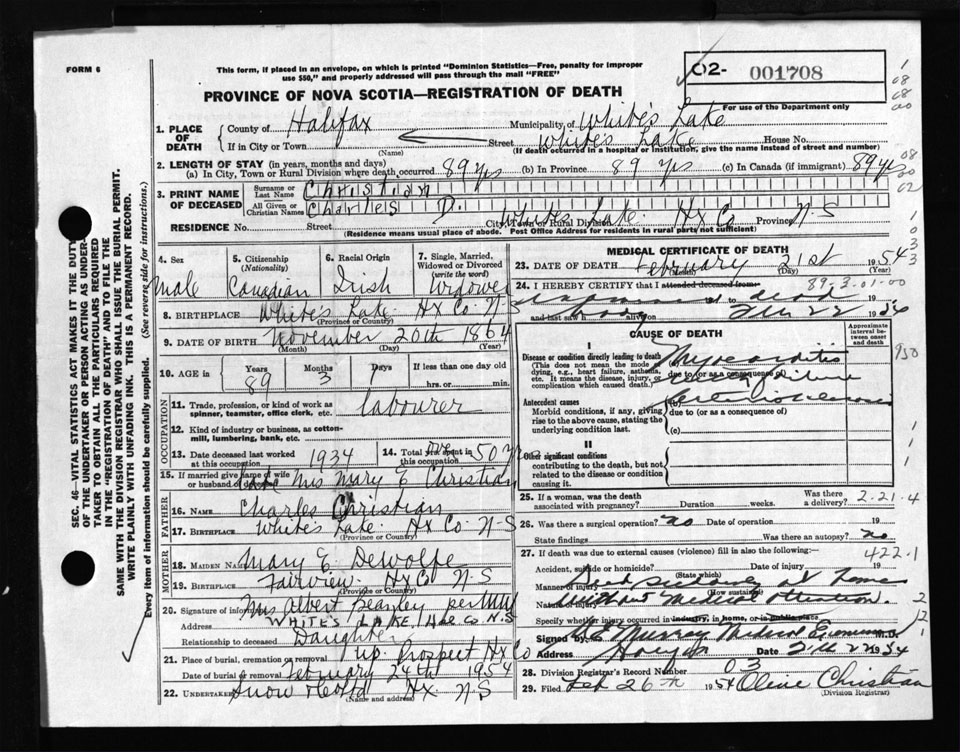 FORM 6
This form, if placed in an envelope, on which is printed "Dominion Statistics—Free, penalty for improper
use $50," and properly addressed will pass through the mail "FREE"
02- 001708
For use of the Department only
PROVINCE OF NOVA SCOTIA—REGISTRATION OF DEATH
1. PLACE OF DEATH
County of Halifax Municipality of White's Lake
If in City or Town (Name) Street White's Lake House No.
(If death occurred in a hospital or institution, give the name instead of street and number)
2. LENGTH OF STAY (in years, months and days)
(a) In City, Town or Rural Division where death occurred 89 yrs (b) In Province 89 yrs (c) In Canada (if immigrant) 89 yrs
3. PRINT NAME OF DECEASED
Surname or Last Name Christian
All Given or Christian Names Charles D.
RESIDENCE No. Street City, Town or Rural Division White's Lake Hx Co Province N-S
(Residence means usual place of abode. Post Office Address for residents in rural parts not sufficient)
4. Sex male
5. Citizenship (Nationality) Canadian
6. Racial Origin Irish
7. Single, Married, Widowed or Divorced (write the word) Widower
8. BIRTHPLACE White's Lake Hx Co N-S
(Province or Country)
9. DATE OF BIRTH November 20th 1864
(Month) (Day) (Year)
10. AGE Years 89 Months 3 Days 1 If less than one day old
hrs. or min.
OCCUPATION
11. Trade, profession, or kind of work as
spinner, teamster, office clerk, etc. labourer
12. Kind of industry or business, as cotton-
mill, lumbering, bank, etc.
13. Date deceased last worked
at this occupation 1934
14. Total yrs. spent in
this occupation over 50 yrs
15. If married give name of wife
or husband of deceased Late Mrs Mary E Christian
FATHER
16. NAME Charles Christian
17. BIRTHPLACE White's Lake Hx Co N-S
(Province or Country)
MOTHER
18. MAIDEN NAME Mary E. DeWolfe
19. BIRTHPLACE Fairview Hx Co N S
(Province or Country)
20. Signature of informant Mrs Albert Beazley per
Address WHITE'S LAKE Hfx Co N.S
Relationship to deceased Daughter
21. Place of burial, cremation or removal up. Prospect Hx Co
Date of burial or removal February 24th 1954
22. Undertaker Snow & Co Ltd Hx N-S
(Name and Address)
MEDICAL CERTIFICATE OF DEATH
23. DATE OF DEATH February 21st 1954
(Month) (Day) (Year)
24. I HEREBY CERTIFY that I attended deceased from 89-3-01-00
to 19
and last saw alive on body Feb 22 1954
CAUSE OF DEATH
Approximate interval between onset and death
I
Disease or condition directly leading to death
(This does not mean the mode of dying, e.g., heart failure, asthma, etc. It means the disease, injury, or complication which caused death.)
(a) Myocarditis
due to (or as a consequence of)
Antecedent causes
Morbid conditions, if any, giving rise to the above cause, stating the underlying condition last.
(b)
due to (or as a consequence of)
(c)
II
Other significant conditions
contributing to the death, but not related to the disease or condition causing it.
25. If a woman, was the death
associated with pregnancy? Duration weeks. Was there a delivery? 2-21-4
26. Was there a surgical operation? no Date of operation 19
State findings Was there an autopsy? no
27. If death was due to external causes (violence) fill in also the following:— 422.1
Accident, suicide or homicide? (State which) Date of injury 19
Manner of injury Died suddenly at home
(How sustained)
Nature of injury without Medical attention.
Specify whether injury occurred in industry, in home, or in public place
Signed by Murray Medical Examiner M.D.
Address Halifax Date Feb 22 1954
28. Division Registrar's Record Number 03
29. Filed Feb 26th 1954 Olive Christian
(Division Registrar)
SEC. 46—VITAL STATISTICS ACT MAKES IT THE DUTY
OF THE UNDERTAKER OR PERSON ACTING AS UNDER-
TAKER TO OBTAIN ALL THE PARTICULARS REQUIRED
IN THE "REGISTRATION OF DEATH" AND TO FILE THE
SAME WITH THE DIVISION REGISTRAR WHO SHALL ISSUE THE BURIAL PERMIT.
WRITE PLAINLY WITH UNFADING INK. THIS IS A PERMANENT RECORD.
Every item of information should be carefully supplied. (See reverse side for instructions.)